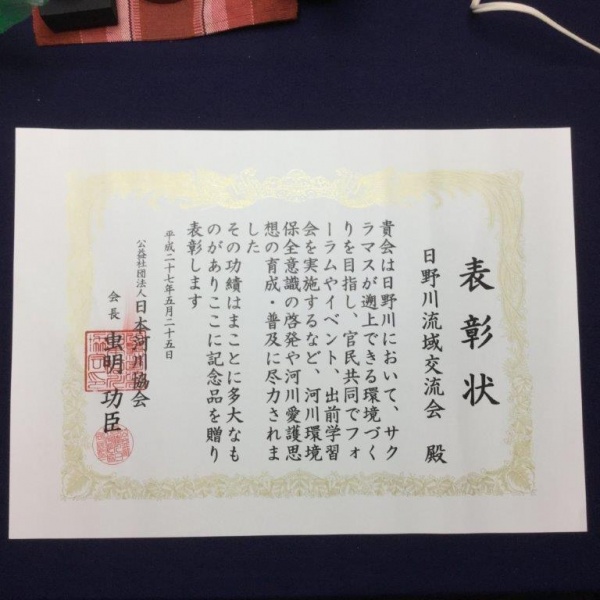 表彰状
日野川流域交流会 殿
貴会は日野川において、サク
ラマスが遡上できる環境づく
りを目指し、官民共同でフォ
ーラムやイベント、出前学習
会を実施するなど、河川環境
保全意識の啓発や河川愛護思
想の育成・普及に尽力されま
した
その功績はまことに多大なも
のがありここに記念品を贈り
表彰します
平成二十七年五月二十五日
公益社団法人日本河川協会
会長 虫明功臣